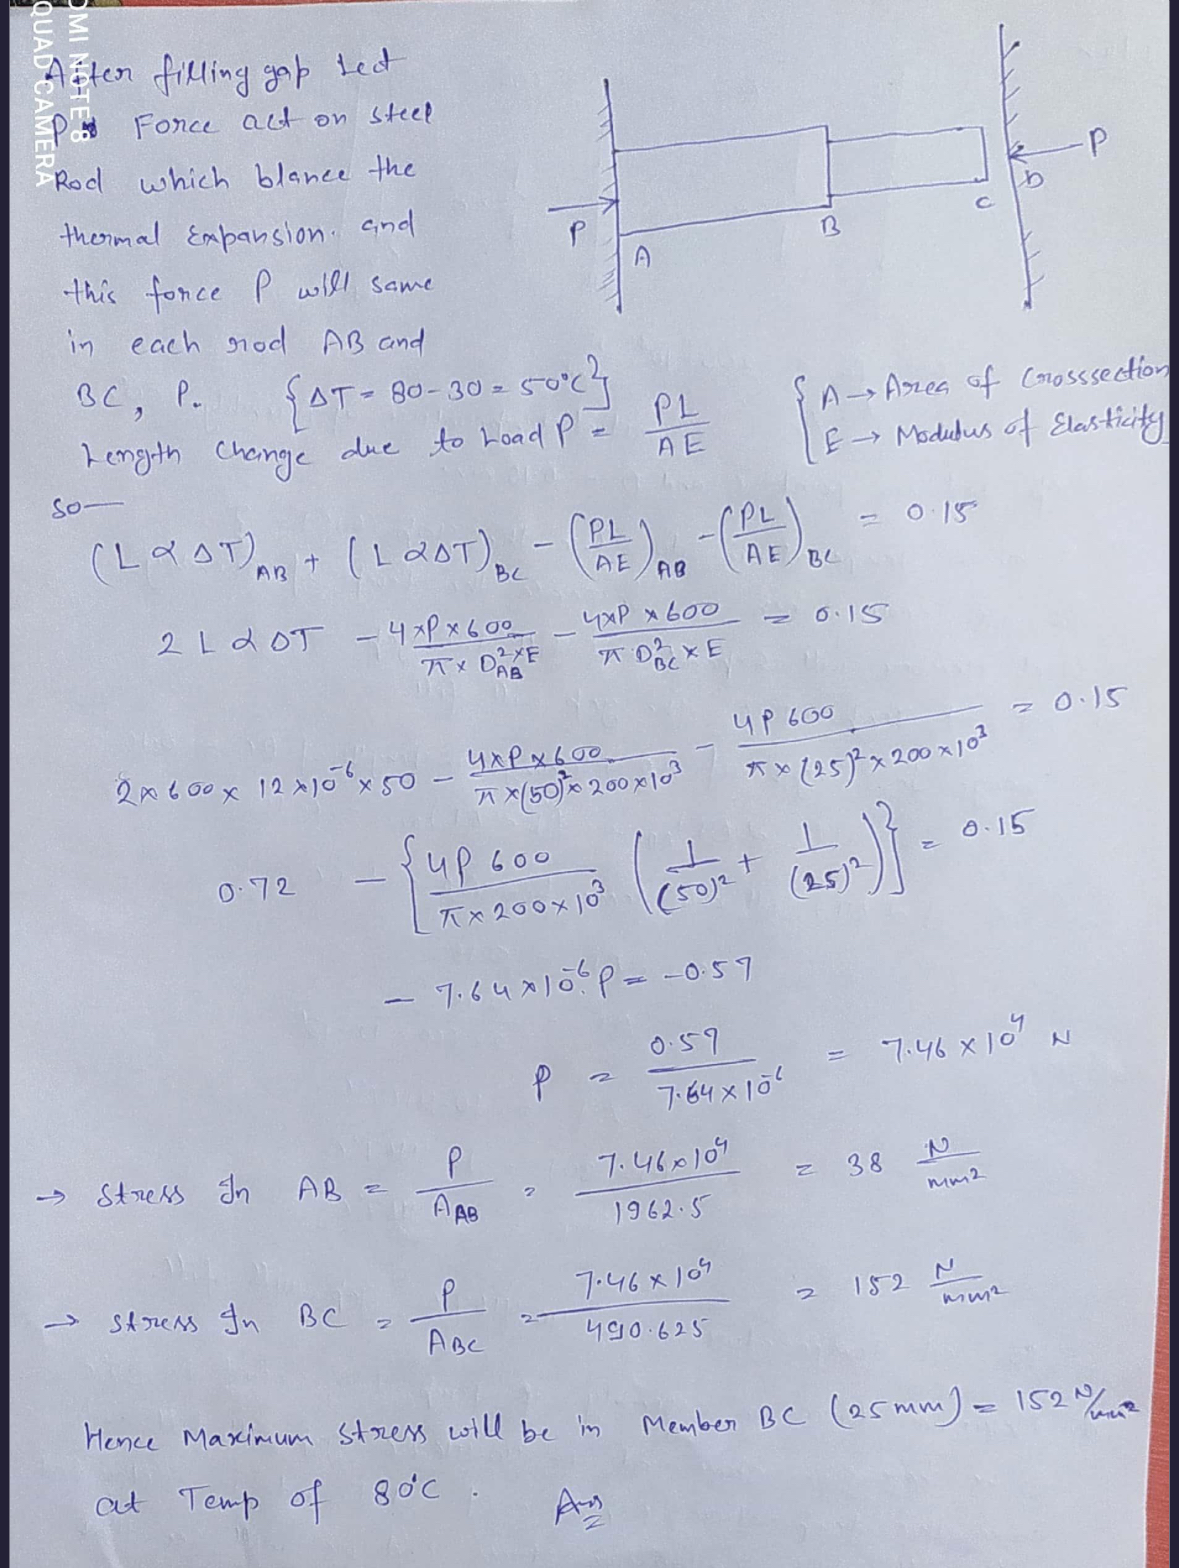 OMI NOTE 8
QUAD CAMERA
After filling gap Lect
P Force act on steel
Rod which blance the
thermal Expansion. and
this force P will same
in each rod AB and
BC, P. {ΔT = 80-30 = 50°C}
P
A
B
C
D
P
Length Change due to Load P = PL/AE
{A → Area of Crosssection
E → Modulus of Elasticity
so—
(L α ΔT)AB + (L αΔT)BC - (PL/AE)AB - (PL/AE)BC = 0.15
2 L α ΔT - 4×P×600/π×D²AB×E - 4×P×600/π D²BC×E = 0.15
2×600×12×10⁻⁶×50 - 4×P×600/π×(50)²×200×10³ - 4P 600/π×(25)²×200×10³ = 0.15
0.72 - {4P 600/π×200×10³ (1/(50)² + 1/(25)²)} = 0.15
- 7.64×10⁻⁶ P = -0.57
P = 0.57/7.64×10⁻⁶ = 7.46×10⁴ N
→ Stress In AB = P/AAB = 7.46×10⁴/1962.5 = 38 N/mm²
→ Stress In BC = P/ABC = 7.46×10⁴/490.625 = 152 N/mm²
Hence Maximum Stress will be in Member BC (25mm) = 152 N/mm²
at Temp of 80°C. Ans